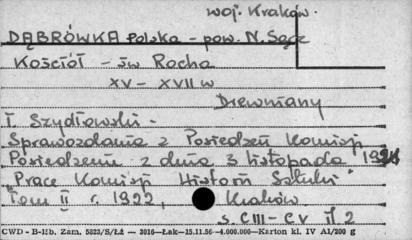 woj. Kraków.
DĄBRÓWKA Polska - pow. N. Sącz
Kościół - św Rocha
XV - XVII w
Drewniany
T. Szydłowski -
Sprawozdania z Posiedzeń Komisji
Posiedzenie z dnia 3 listopada
"Prace Komisji Historii Sztuki"
Tom II r. 1922, Kraków
s. CIII - CV il. 2
CWD - B-15b. Zam. 5823/S/Łż — 3016—Łak—15.11.56—4.000.000—Karton kl. IV A1/200 g